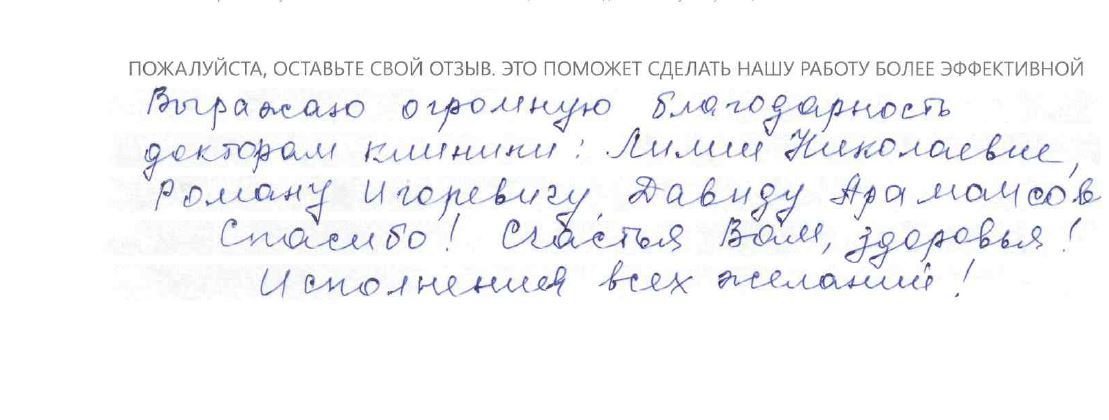 ПОЖАЛУЙСТА, ОСТАВЬТЕ СВОЙ ОТЗЫВ. ЭТО ПОМОЖЕТ СДЕЛАТЬ НАШУ РАБОТУ БОЛЕЕ ЭФФЕКТИВНОЙ
Выражаю огромную благодарность
докторам клиники: Лилии Николаевне,
Роману Игоревичу, Давиду
Спасибо! Счастья Вам, здоровья!
Исполнения всех желаний!